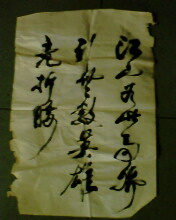 江山如此多娇
引无数英雄
竞折腰